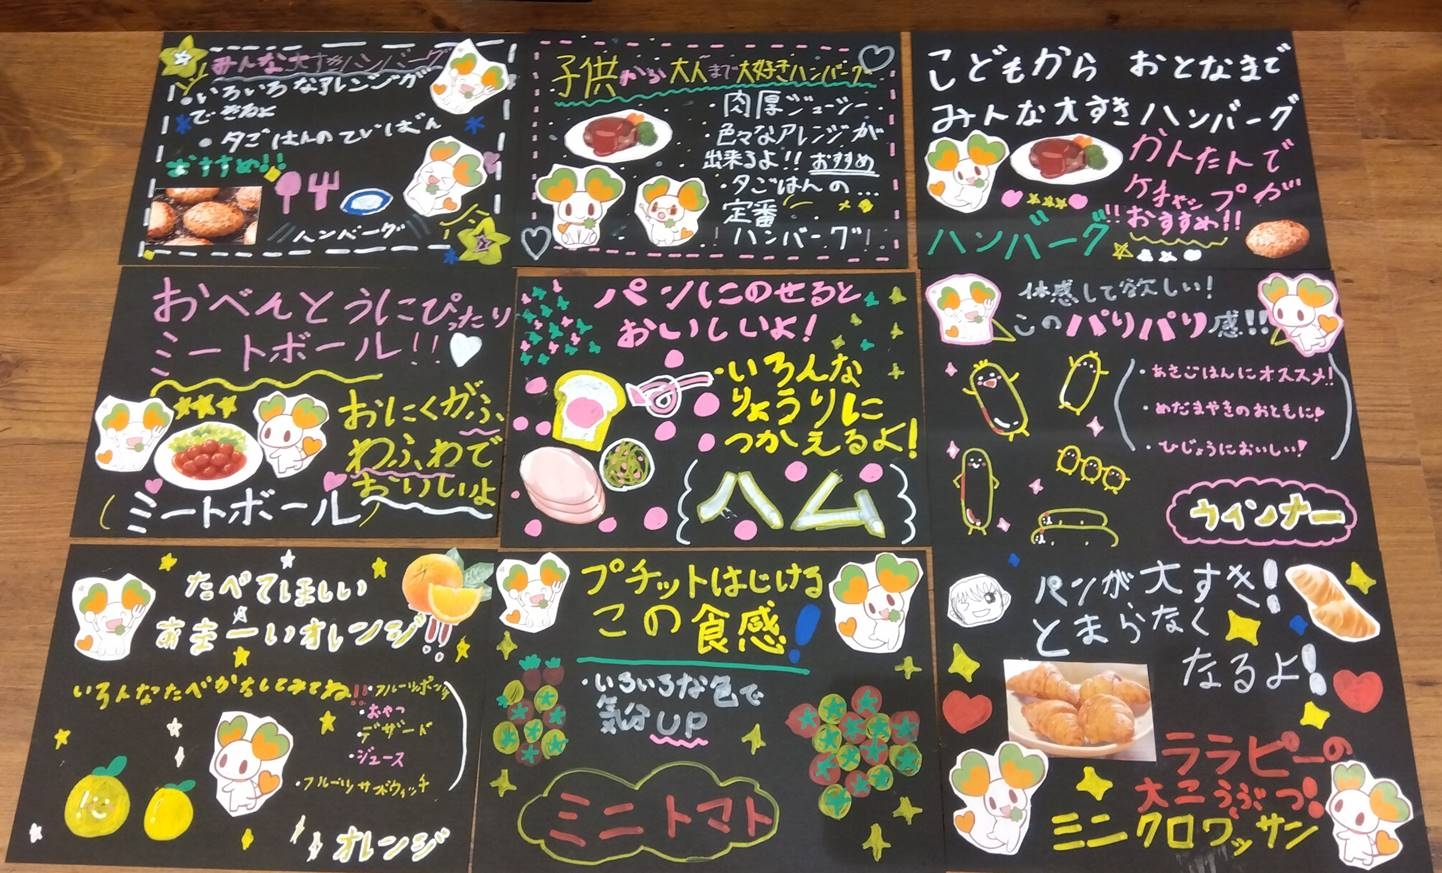 みんな大すきハンバーグ
・いろいろなアレンジが
できるよ
・夕ごはんのていばん
おすすめ!!
ハンバーグ
子供から大人まで大好きハンバーグ
・肉厚ジューシー
・色々なアレンジが
出来るよ!! おすすめ
・夕ごはんの…
定番
ハンバーグ!
こどもから おとなまで
みんな大すきハンバーグ
かんたんで
ケチャップが
おすすめ!!
ハンバーグ!!
おべんとうにぴったり
ミートボール!!
おにくがふ、
わふわで
おいしいよ
(ミートボール)
パンにのせると
おいしいよ!
・いろんな
りょうりに
つかえるよ!
(ハム)
体感して欲しい!
このパリパリ感!!
・あさごはんにオススメ!
・めだまやきのおともに♥
・ひじょうにおいしい!
ウインナー
たべてほしい
あまーいオレンジ!!
いろんなたべかたしてみてね!!
・フルーツポンチ
・おやつ
・デザート
・ジュース
・フルーツサンドウィッチ
オレンジ
プチットはじける
この食感!
・いろいろな色で
気分UP
ミニトマト
パンが大すき!
とまらなく
なるよ!
ララピーの
大こうぶつ!
ミニクロワッサン